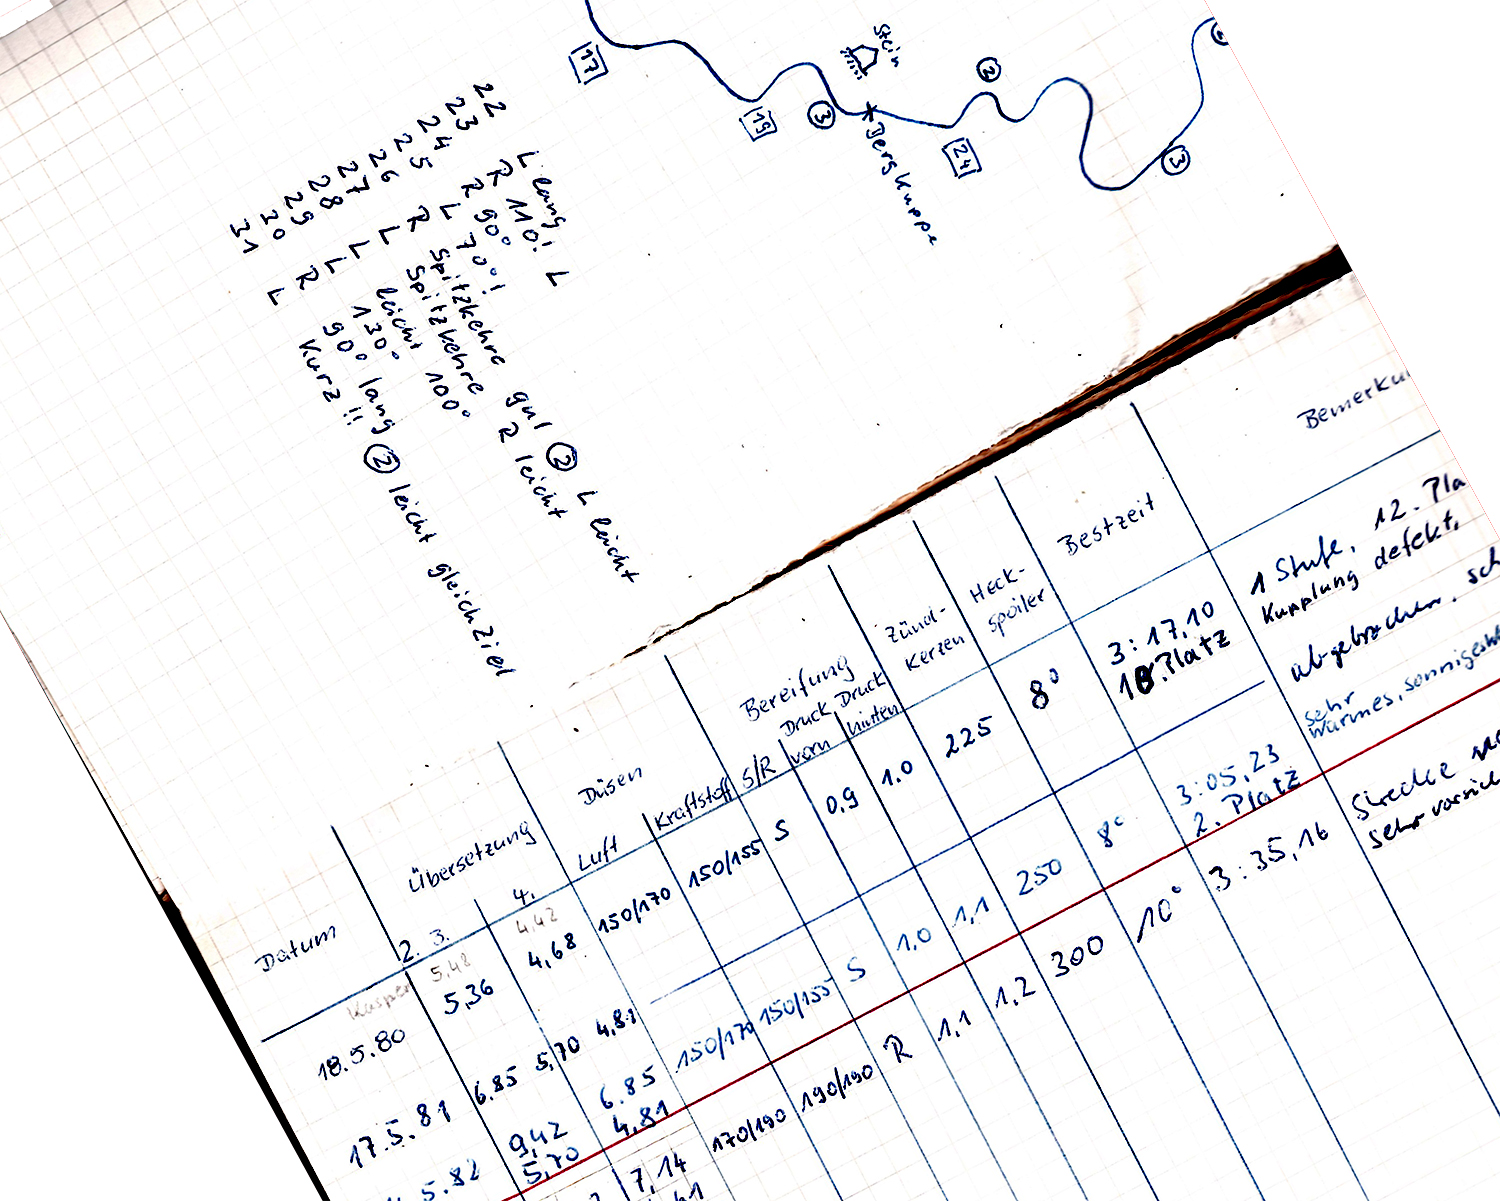 17
19
3
Stein
Bergkuppe
24
2
3
22 L lang!
23 R 110! L
24 R 90°
25 L 70°!
26 R Spitzkehre gut 2 L leicht
27 L Spitzkehre R leicht
28 L leicht 100°
29 L 130°
30 R 90° lang
31 L kurz!! 2 leicht gleich Ziel
Datum Übersetzung Düsen Bereifung Zünd-kerzen Heck-spoiler Bestzeit
2. 3. 4. Luft Kraftstoff S/R Druck vorn Druck hinten
Kasper 5,48 4,42
18.5.80 5,36 4,68 150/170 150/155 S 0,9 1.0 225 8° 3:17,10
10.Platz
1 Stufe, 12.
Kupplung defekt,
abgebrochen,
sehr
warmes,
17.5.81 6.85 5,70 4,81 150/170 150/155 S 1,0 1,1 250 8° 3:05,23
2. Platz
5.82 9,42 6.85
5,70 4,81
170/190 190/190 R 1,1 1,2 300 10° 3:35,16
Strecke
sehr
7,14